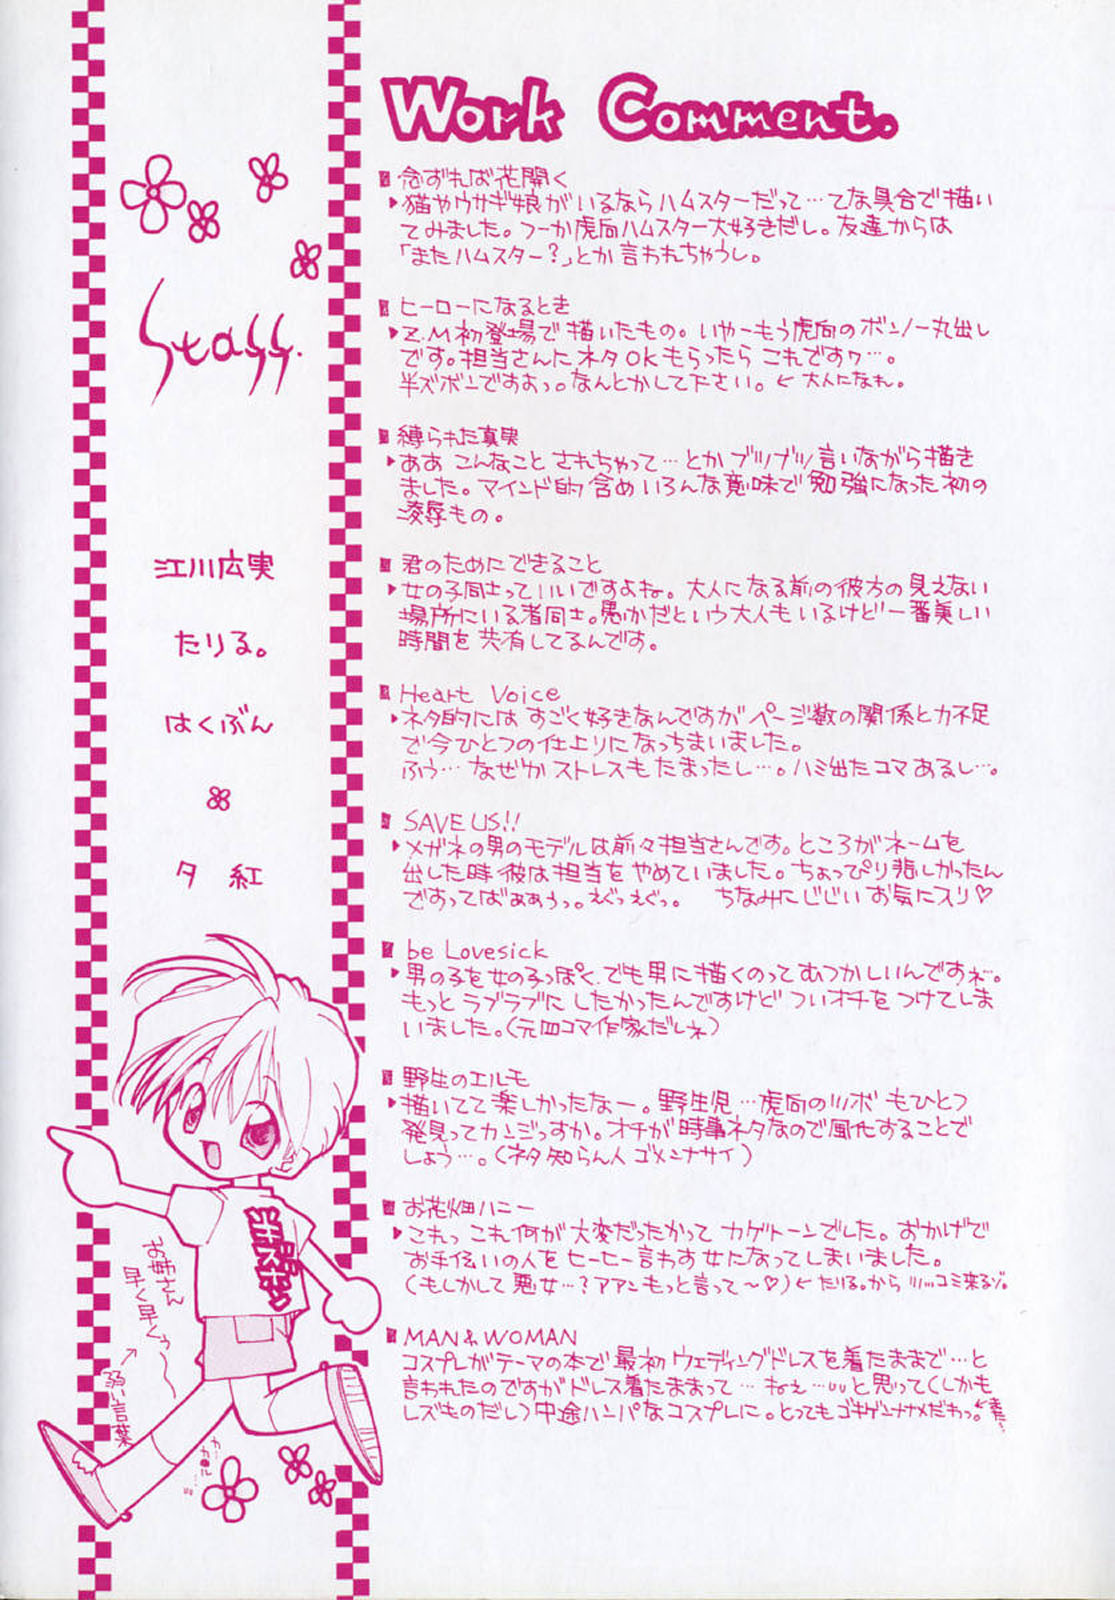 Work Comment.
念ずれば花開く
猫やウサギ娘がいるならハムスターだって…てな具合で描い
てみました。フーか虎向ハムスター大好きだし。友達からは
「またハムスター?」とか言われちゃうし。
ヒーローになるとき
Z.M初登場で描いたもの。いやーもう虎向のボンノー丸出し
です。担当さんにネタOKもらったらこれですヮ…。
半ズボンですよっ。なんとかして下さい。←大人になれ。
縛られた真実
ああこんなことされちゃって…とかブツブツ言いながら描き
ました。マインド的含めいろんな意味で勉強になった初の
凌辱もの。
君のためにできること
女の子同士っていいですよね。大人になる前の彼方の見えない
場所にいる者同士。愚かだという大人もいるけど一番美しい
時間を共有してるんです。
Heart Voice
ネタ的にはすごく好きなんですがページ数の関係と力不足
で今ひとつの仕上りになっちまいました。
ふぅ…なぜかストレスもたまったし…。ハミ出たコマあるし…。
SAVE US!!
メガネの男のモデルは前々担当さんです。ところがネームを
出した時彼は担当をやめていました。ちょっぴり悲しかったん
ですってばぁぁぅっ。えぐっえぐっ。 ちなみにじじいお気にスリ♡
be Lovesick
男の子を女の子っぽく、でも男に描くのってむつかしいんですネ。
もっとラブラブにしたかったんですけどついオチをつけてしま
いました。(元四コマ作家だしネ)
野生のエルモ
描いてて楽しかったなー。野生児…虎向のツボもひとつ
発見ってカンジっすか。オチが時事ネタなので風化することで
しょう…。(ネタ知らん人ゴメンナサイ)
お花畑ハニー
これっこれ何が大変だったかってカゲトーンでした。おかげで
お手伝いの人をヒーヒー言わす女になってしまいました。
(もしかして悪女…?アアンもっと言って〜♡)←たりる。からツッコミ来るゾ。
MAN & WOMAN
コスプレがテーマの本で最初ウェディングドレスを着たままで…と
言われたのですがドレス着たままって…ねぇ…と思って(しかも
レズものだし)中途ハンパなコスプレに。とってもゴキゲンナナメだわっ。
Staff.
江川広実
たりる。
はくぶん
夕紅
半ズボン
お姉さん
早く早くぅ〜
弱い言葉